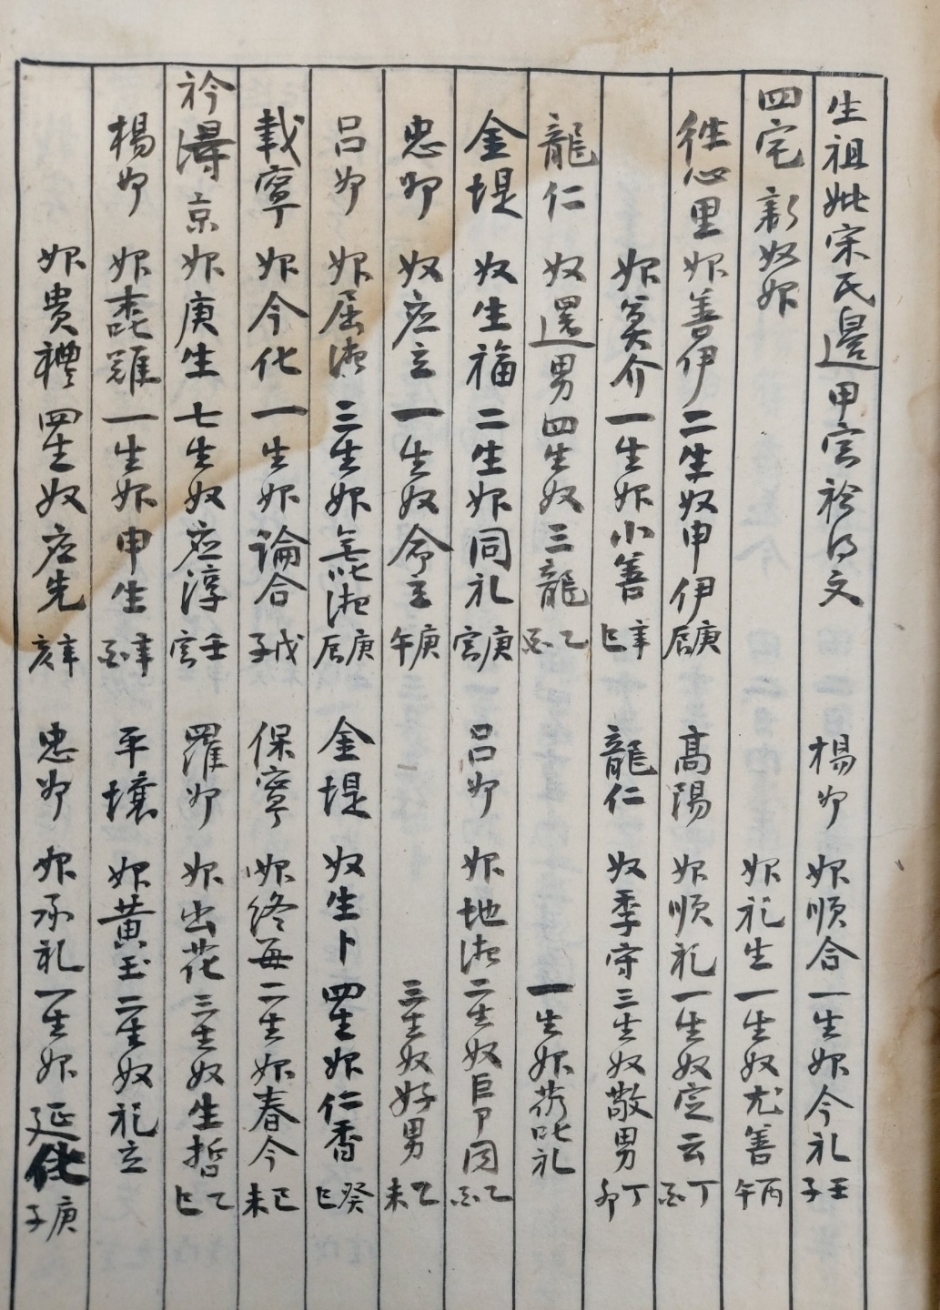 生祖妣宋民邊甲寅衿得文 楊州 婢順合一生婢今礼壬子
四宅新奴婢 婢礼生一生奴尤善丙午
徃心里婢善伊二生奴申伊庚辰 高陽 婢順礼一生奴定云丁酉
婢莫介一生婢小善辛巳 龍仁 奴季守三生奴敬男丁卯
龍仁 奴還男四生奴三龍乙酉 一生婢礼
金堤 奴生福二生婢同礼庚寅 呂州 婢地淑二生奴同乙酉
忠州 奴应立一生奴命立庚午 三生奴好男乙未
呂州 婢屈淑三生婢淑庚辰 金堤 奴生卜四生婢仁香癸巳
載寧 婢今化一生婢論合戊子 保寧 婢終每二生婢春今己未
衿得京婢庚生七生奴应淳壬寅 羅州 婢出花三生奴生哲乙巳
楊州 婢一生婢申生辛酉 平壤 婢黃玉二生奴礼立
婢貴禮四生奴应先辛亥 忠州 婢承礼一生婢延化庚子